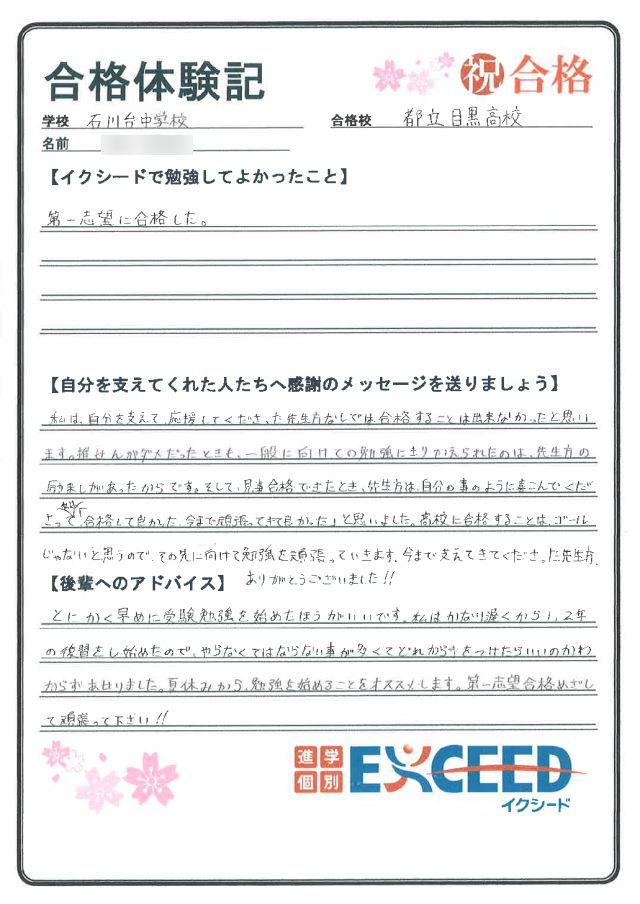 合格体験記
祝 合格
学校 石川台中学校
合格校 都立目黒高校
名前
【イクシードで勉強してよかったこと】
第一志望に合格した。
【自分を支えてくれた人たちへ感謝のメッセージを送りましょう】
私は、自分を支えて、応援してくださった先生方なしでは合格することは出来なかったと思い
ます。推せんがダメだったときも、一般に向けての勉強にきりかえられたのは、先生方の
励ましがあったからです。そして、見事合格できたとき、先生方は、自分の事のように喜こんでくだ
さって、合格して良かった、今まで頑張ってきて良かった」と思いました。高校に合格することは、ゴール
じゃないと思うので、その先に向けて勉強を頑張っていきます。今まで支えてきてくださった先生方、
ありがとうございました!!
【後輩へのアドバイス】
とにかく早めに受験勉強を始めたほうがいいです。私はかなり遅くから1,2年
の復習をし始めたので、やらなくてはならない事が多くてどれから手をつけたらいいのかわ
からずあせりました。夏休みから、勉強を始めることをオススメします。第一志望合格めざし
て頑張って下さい!!
進学
個別
EXCEED
イクシード